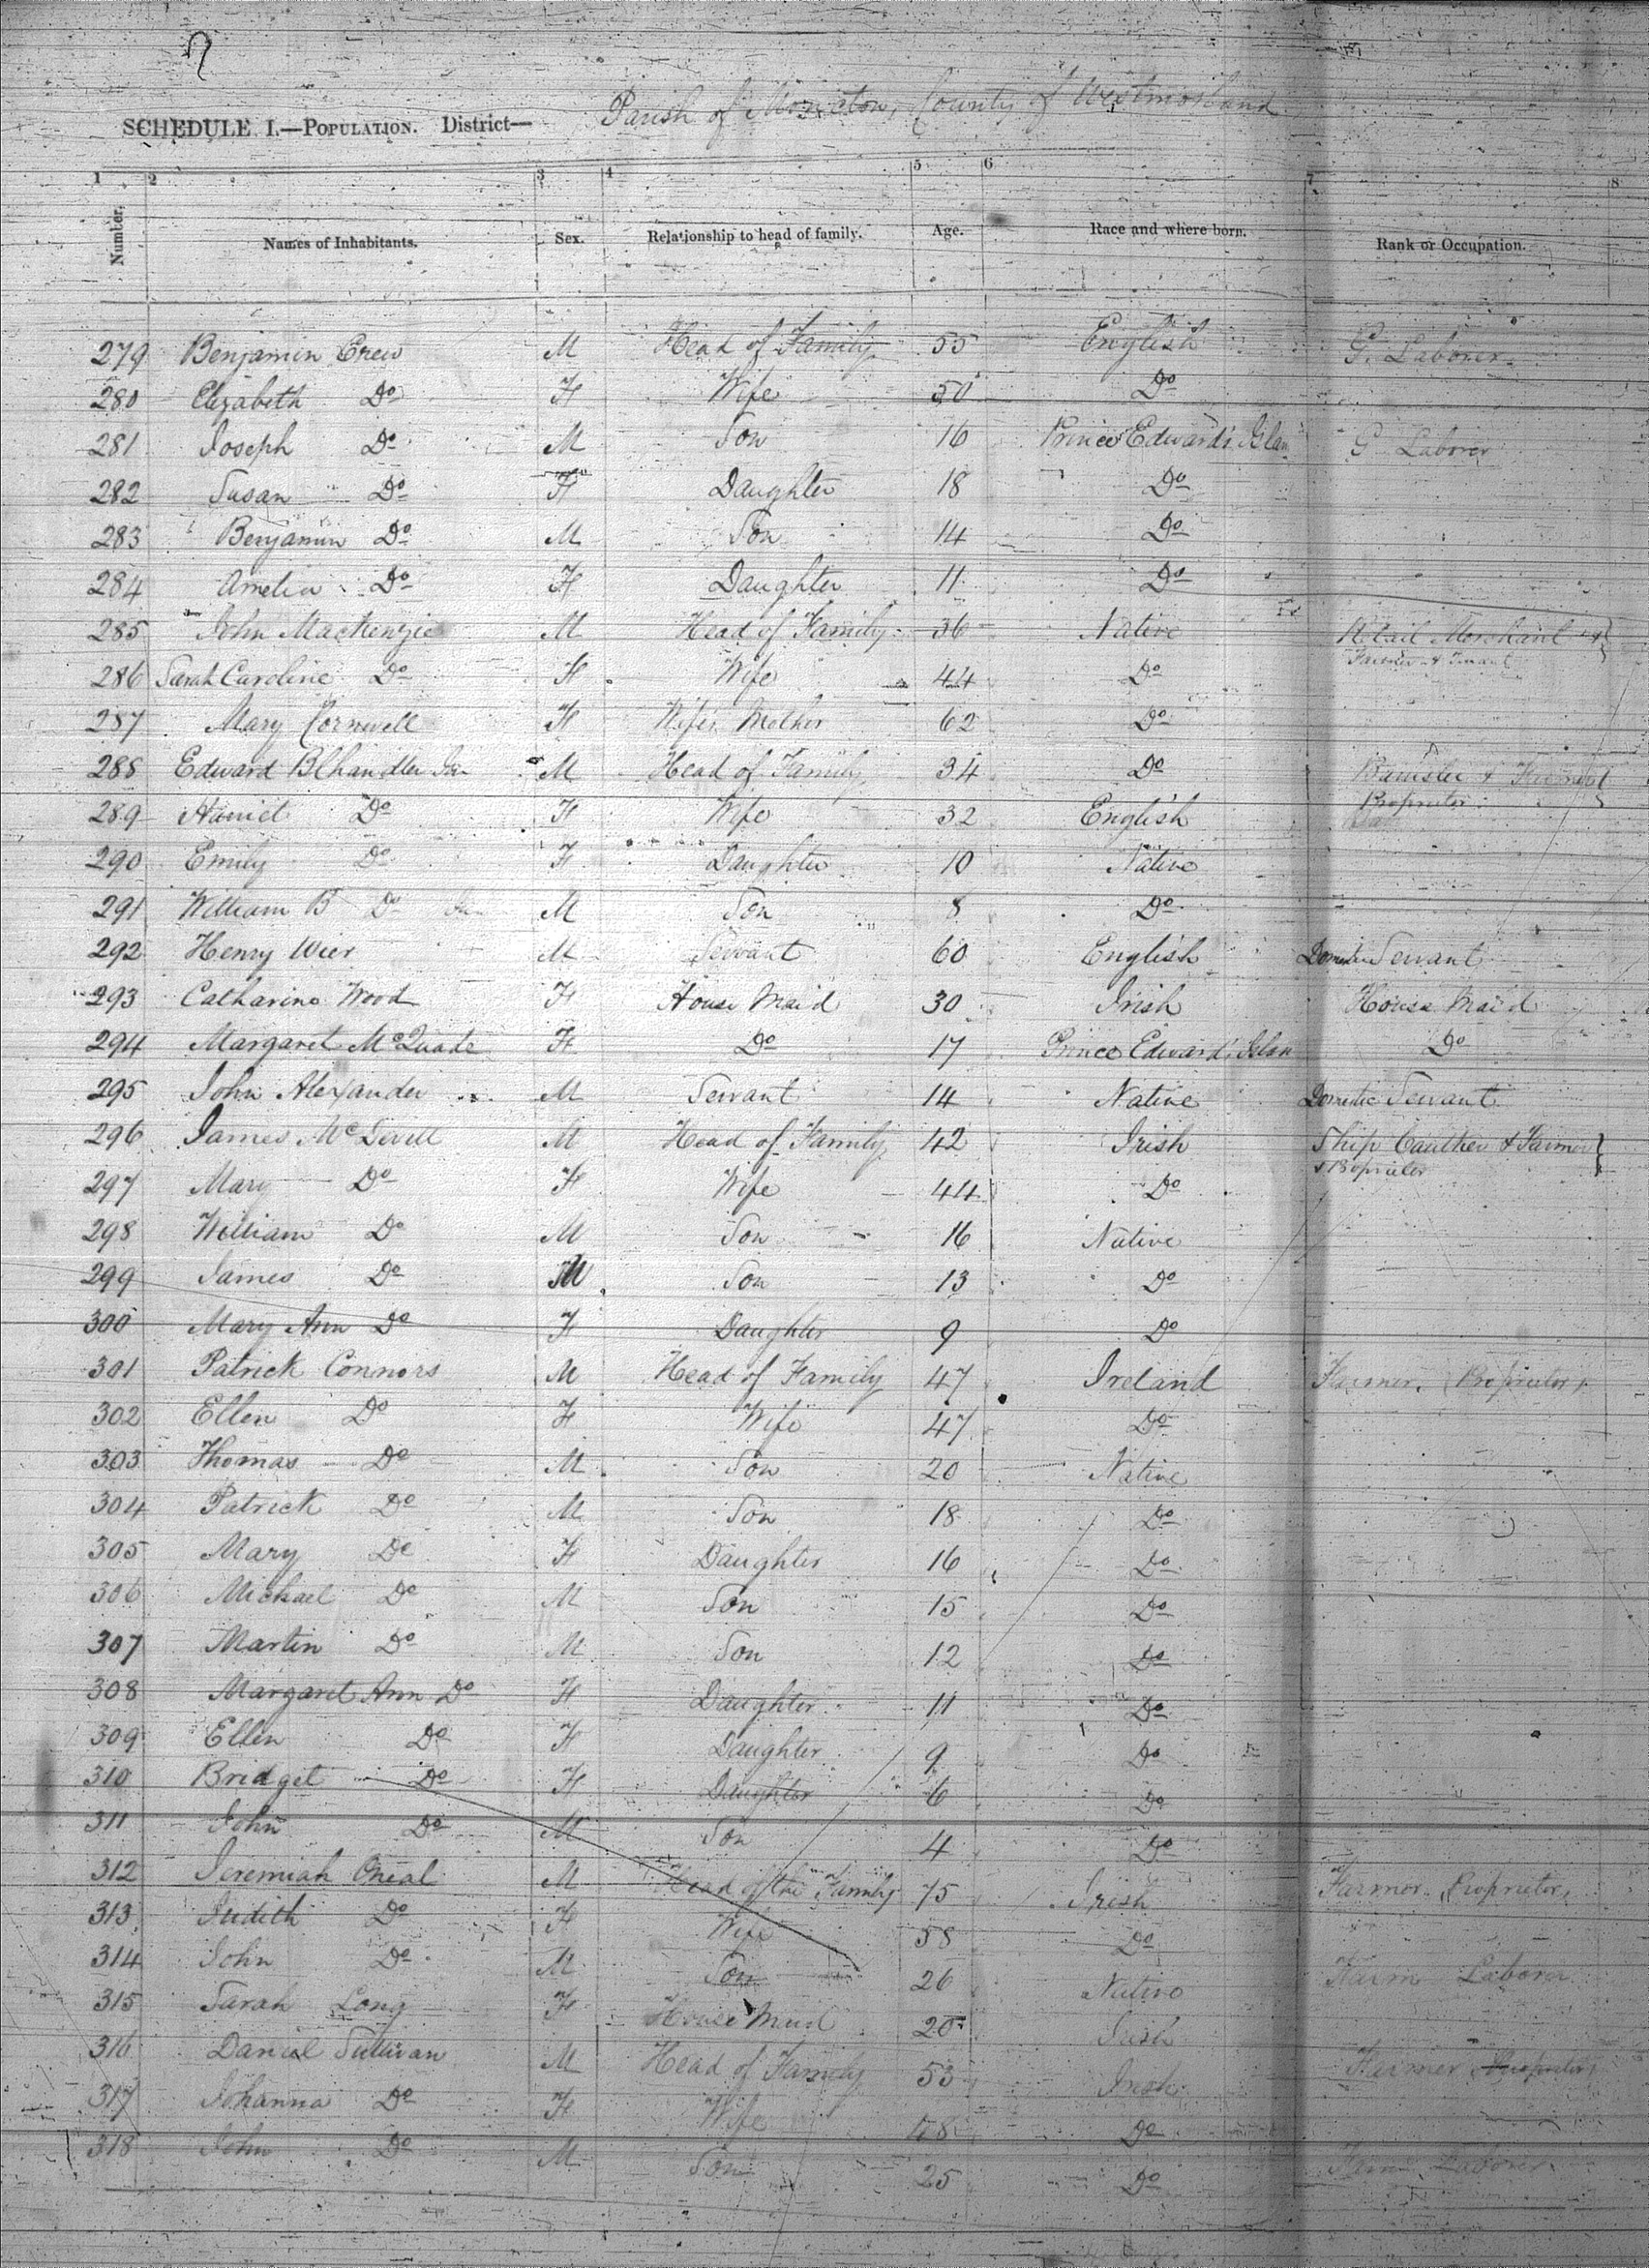 Parish of Moncton, County of Westmorland
SCHEDULE I.—POPULATION. District—
1 2 3 4 5 6 7 8
Number. Names of Inhabitants. Sex. Relationship to head of family. Age. Race and where born. Rank or Occupation.
279 Benjamin Crew M Head of Family 55 English G. Laborer
280 Elizabeth Do F Wife 50 Do
281 Joseph Do M Son 16 Prince Edward's Islan G Laborer
282 Susan Do F Daughter 18 Do
283 Benjamin Do M Son 14 Do
284 Amelia Do F Daughter 11 Do
285 John MacKenzie M Head of Family 36 Native Retail Merchant &
Farmer & Tenant
286 Sarah Caroline Do F Wife 44 Do
287 Mary Cornwell F Wife's Mother 62 Do
288 Edward B Chandler Jun M Head of Family 34 Do Barrister & Farmer
Proprietor
289 Harriet Do F Wife 32 English
290 Emily Do F Daughter 10 Native
291 William B Do M Son 8 Do
292 Henry Wier M Servant 60 English Domestic Servant
293 Catharine Wood F House Maid 30 Irish House Maid
294 Margaret McQuade F Do 17 Prince Edward's Islan Do
295 John Alexander M Servant 14 Native Domestic Servant
296 James McDevitt M Head of Family 42 Irish Ship Caulker & Farmer
& Proprietor
297 Mary Do F Wife 44 Do
298 William Do M Son 16 Native
299 James Do M Son 13 Do
300 Mary Ann Do F Daughter 9 Do
301 Patrick Connors M Head of Family 47 Ireland Farmer, Proprietor
302 Ellen Do F Wife 47 Do
303 Thomas Do M Son 20 Native
304 Patrick Do M Son 18 Do
305 Mary Do F Daughter 16 Do
306 Michael Do M Son 15 Do
307 Martin Do M Son 12 Do
308 Margaret Ann Do F Daughter 11 Do
309 Ellen Do F Daughter 9 Do
310 Bridget Do F Daughter 6 Do
311 John Do M Son 4 Do
312 Jeremiah Oneal M Head of the Family 75 Irish Farmer, Proprietor
313 Judith Do F Wife 58 Do
314 John Do M Son 26 Native Farm Laborer
315 Sarah Long F House Maid 20 Irish
316 Daniel Sullivan M Head of Family 53 Irish Farmer, Proprietor
317 Johanna Do F Wife 48 Do
318 John Do M Son 25 Do Farm Laborer